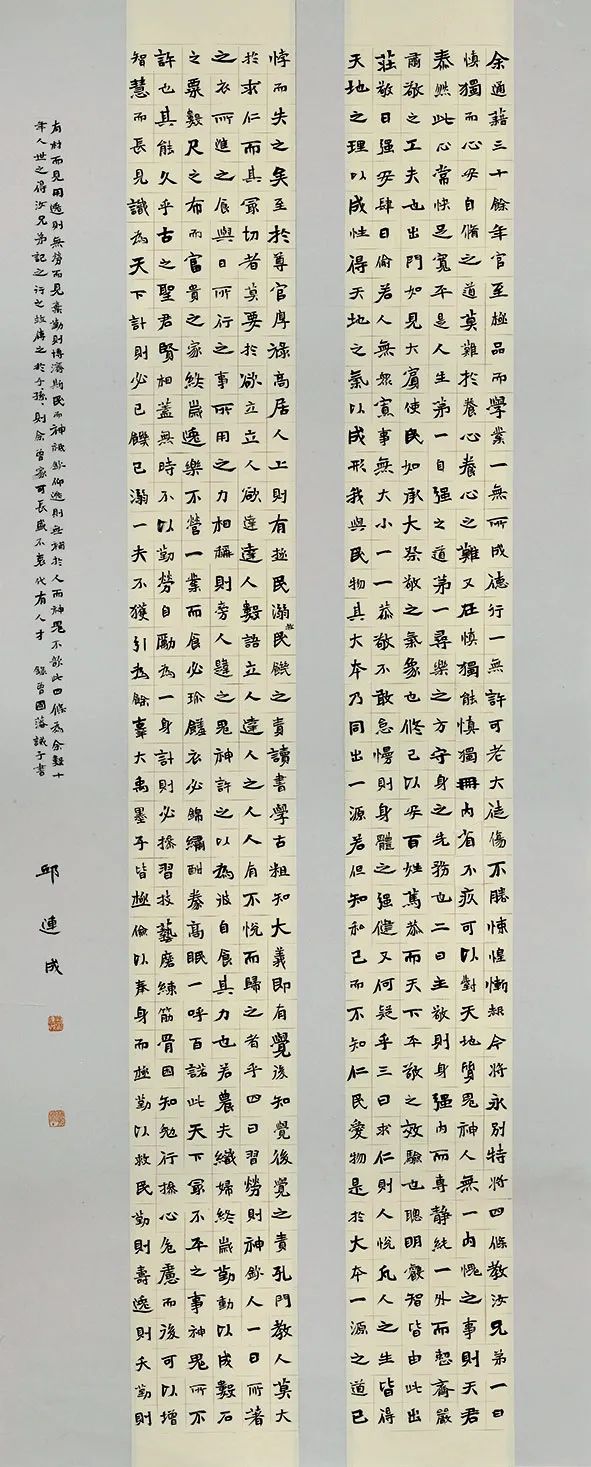 余通籍三十餘年官至極品而學業一無所成德行一無許可老大徒傷不勝悚惶慚赧今將永別特將四條教汝兄弟一曰
慎獨而心安自修之道莫難於養心養心之難又在慎獨能慎獨則內省不疚可以對天地質鬼神人無一內愧之事則天君
泰然此心常快足寬平是人生第一自強之道第一尋樂之方守身之先務也二曰主敬則身強內而專靜純一外而整齊嚴
肅敬之工夫也出門如見大賓使民如承大祭敬之氣象也修己以安百姓篤恭而天下平敬之效驗也聰明睿智皆由此出
莊敬日強安肆日偷若人無眾寡事無大小一一恭敬不敢怠慢則身體之強健又何疑乎三曰求仁則人悅凡人之生皆得
天地之理以成性得天地之氣以成形我與民物其大本乃同出一源若但知私己而不知仁民愛物是於大本一源之道已
悖而失之矣至於尊官厚祿高居人上則有拯民溺救民饑之責讀書學古粗知大義即有覺後知覺後覺之責孔門教人莫大
於求仁而其最切者莫要於欲立立人欲達達人數語立人達人之人人有不悅而歸之者乎四曰習勞則神欽人一日所著
之衣所進之食與日所行之事所用之力相稱則旁人韙之鬼神許之以為彼自食其力也若農夫織婦終歲勤動以成數石
之粟數尺之布而富貴之家終歲逸樂不營一業而食必珍饈衣必錦繡酣豢高眠一呼百諾此天下最不平之事神鬼所不
許也其能久乎古之聖君賢相蓋無時不以勤勞自勵為一身計則必操習技藝磨練筋骨困知勉行操心危慮而後可以增
智慧而長見識為天下計則必己饑己溺一夫不獲引為餘辜大禹墨子皆極儉以奉身而極勤以救民勤則壽逸則夭勤則
有材而見用逸則無勞而見棄勤則博濟斯民而神祇欽仰逸則無補於人而神鬼不歆此四條為余數十
年人世之得汝兄弟記之行之故傳之於子孫則余曾家可長盛不衰代有人才 錄曾國藩誡子書
邱連成